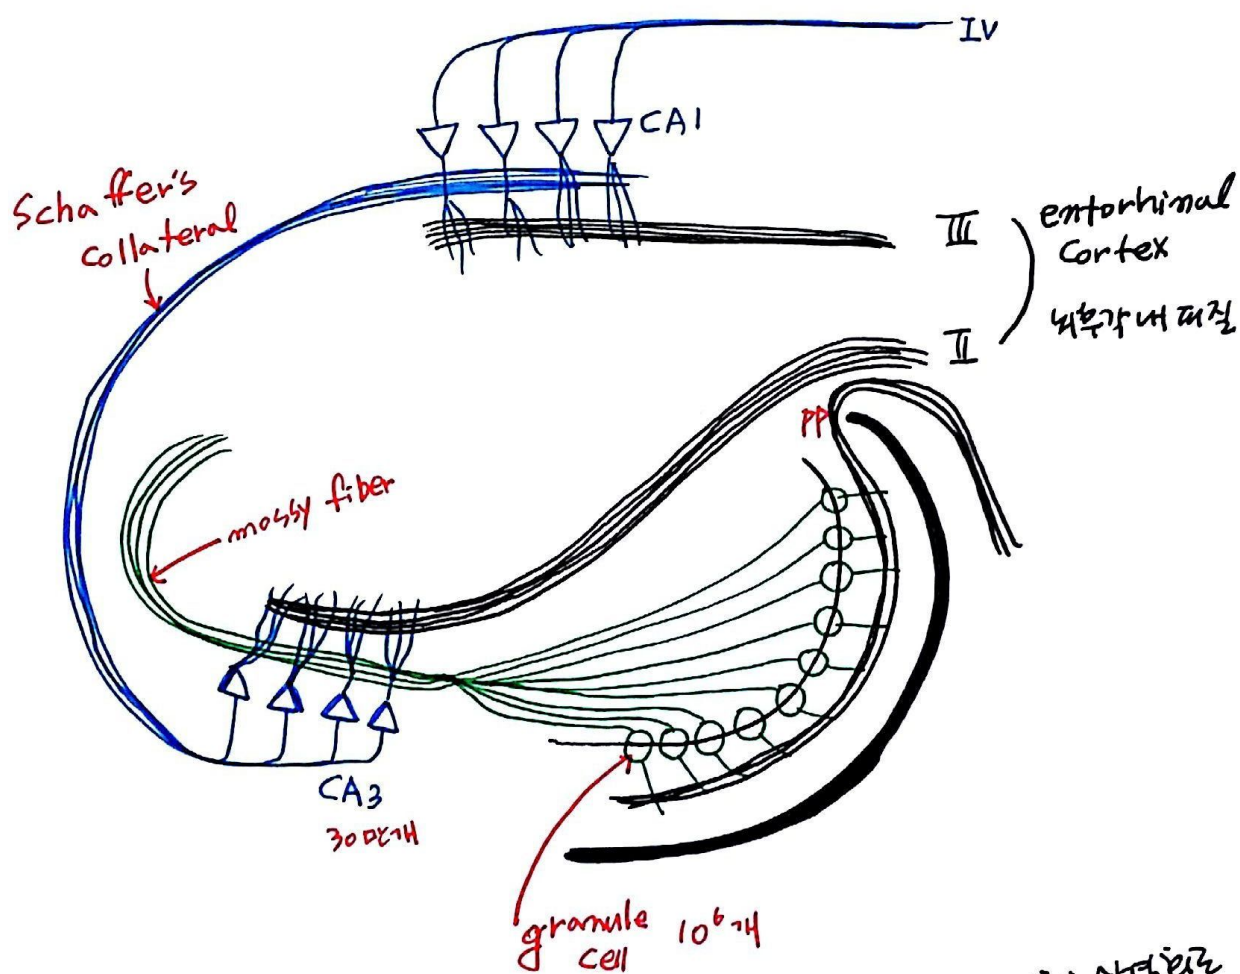 IV
CA1
Schaffer's
Collateral
III
entorhinal
cortex
뇌후각내피질
II
PP
mossy fiber
CA3
30만개
granule
cell
10⁶개